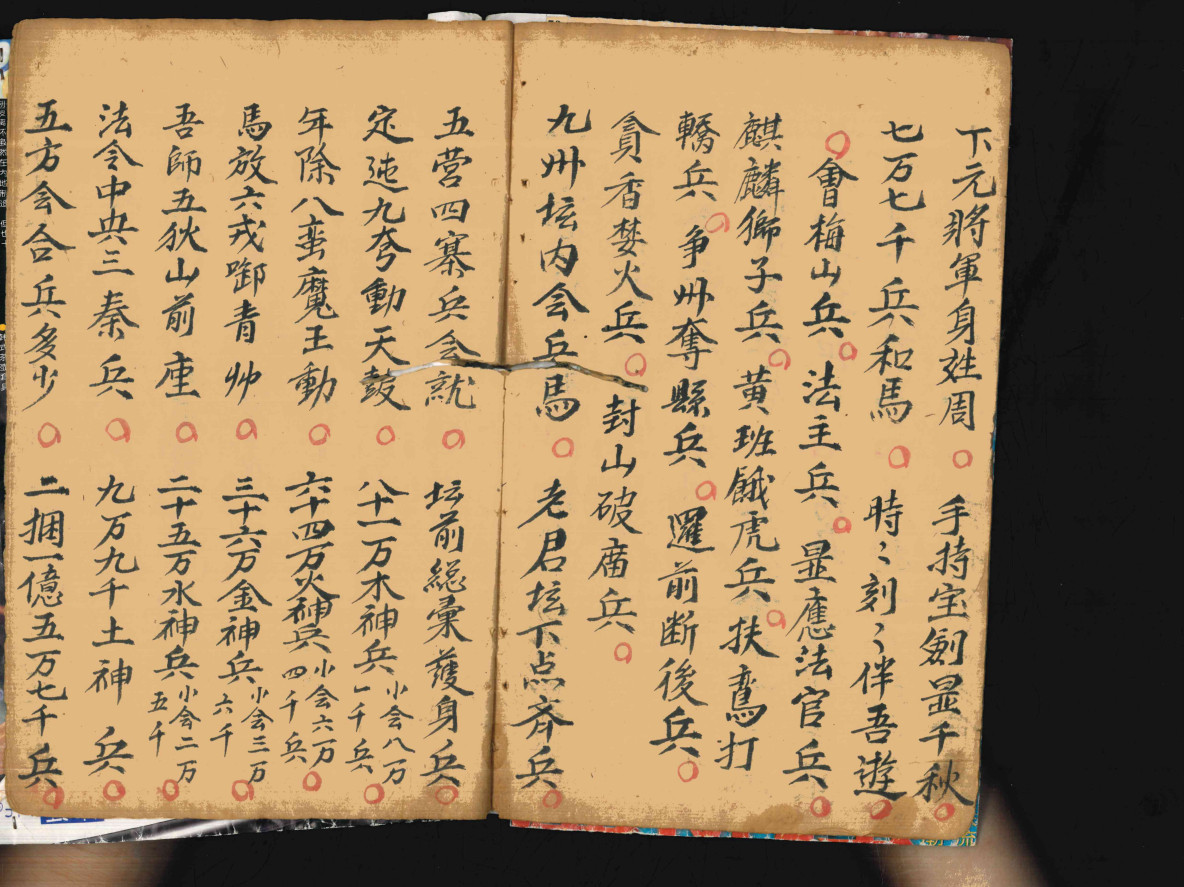 下元將軍身姓周 手持宝劍显千秋
七万七千兵和馬 時〻刻〻伴吾遊
會梅山兵 法主兵 显應法官兵
麒麟獅子兵 黃班餓虎兵 扶鸾打
轎兵 争州奪縣兵 邏前断後兵
貪香焚火兵 封山破庙兵
九州坛内会兵馬 老君坛下点齐兵
五营四寨兵会就 坛前総彙護身兵
定九夸動天鼓 八十一万木神兵 小会八万一千兵
年除八蛮魔王動 六十四万火神兵 小会六万四千兵
馬放六戎啣青帅 三十六万金神兵 小会三万六千
吾師五狄山前座 二十五万水神兵 小会二万五千
法令中央三秦兵 九万九千土神兵
五方会合兵多少 二捆一億五万七千兵